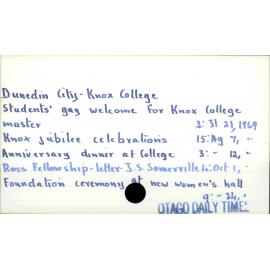 Dunedin City - Knox College
Students' gay welcome for Knox College
master 3: Jl 21, 1969
Knox jubilee celebrations 15: Ag 7, "
Anniversary dinner at College 3: - 12, "
Ross Fellowship - letter J.S. Somerville 4: Oct 1, "
Foundation ceremony at new women's hall
9: - 24, "
OTAGO DAILY TIMES